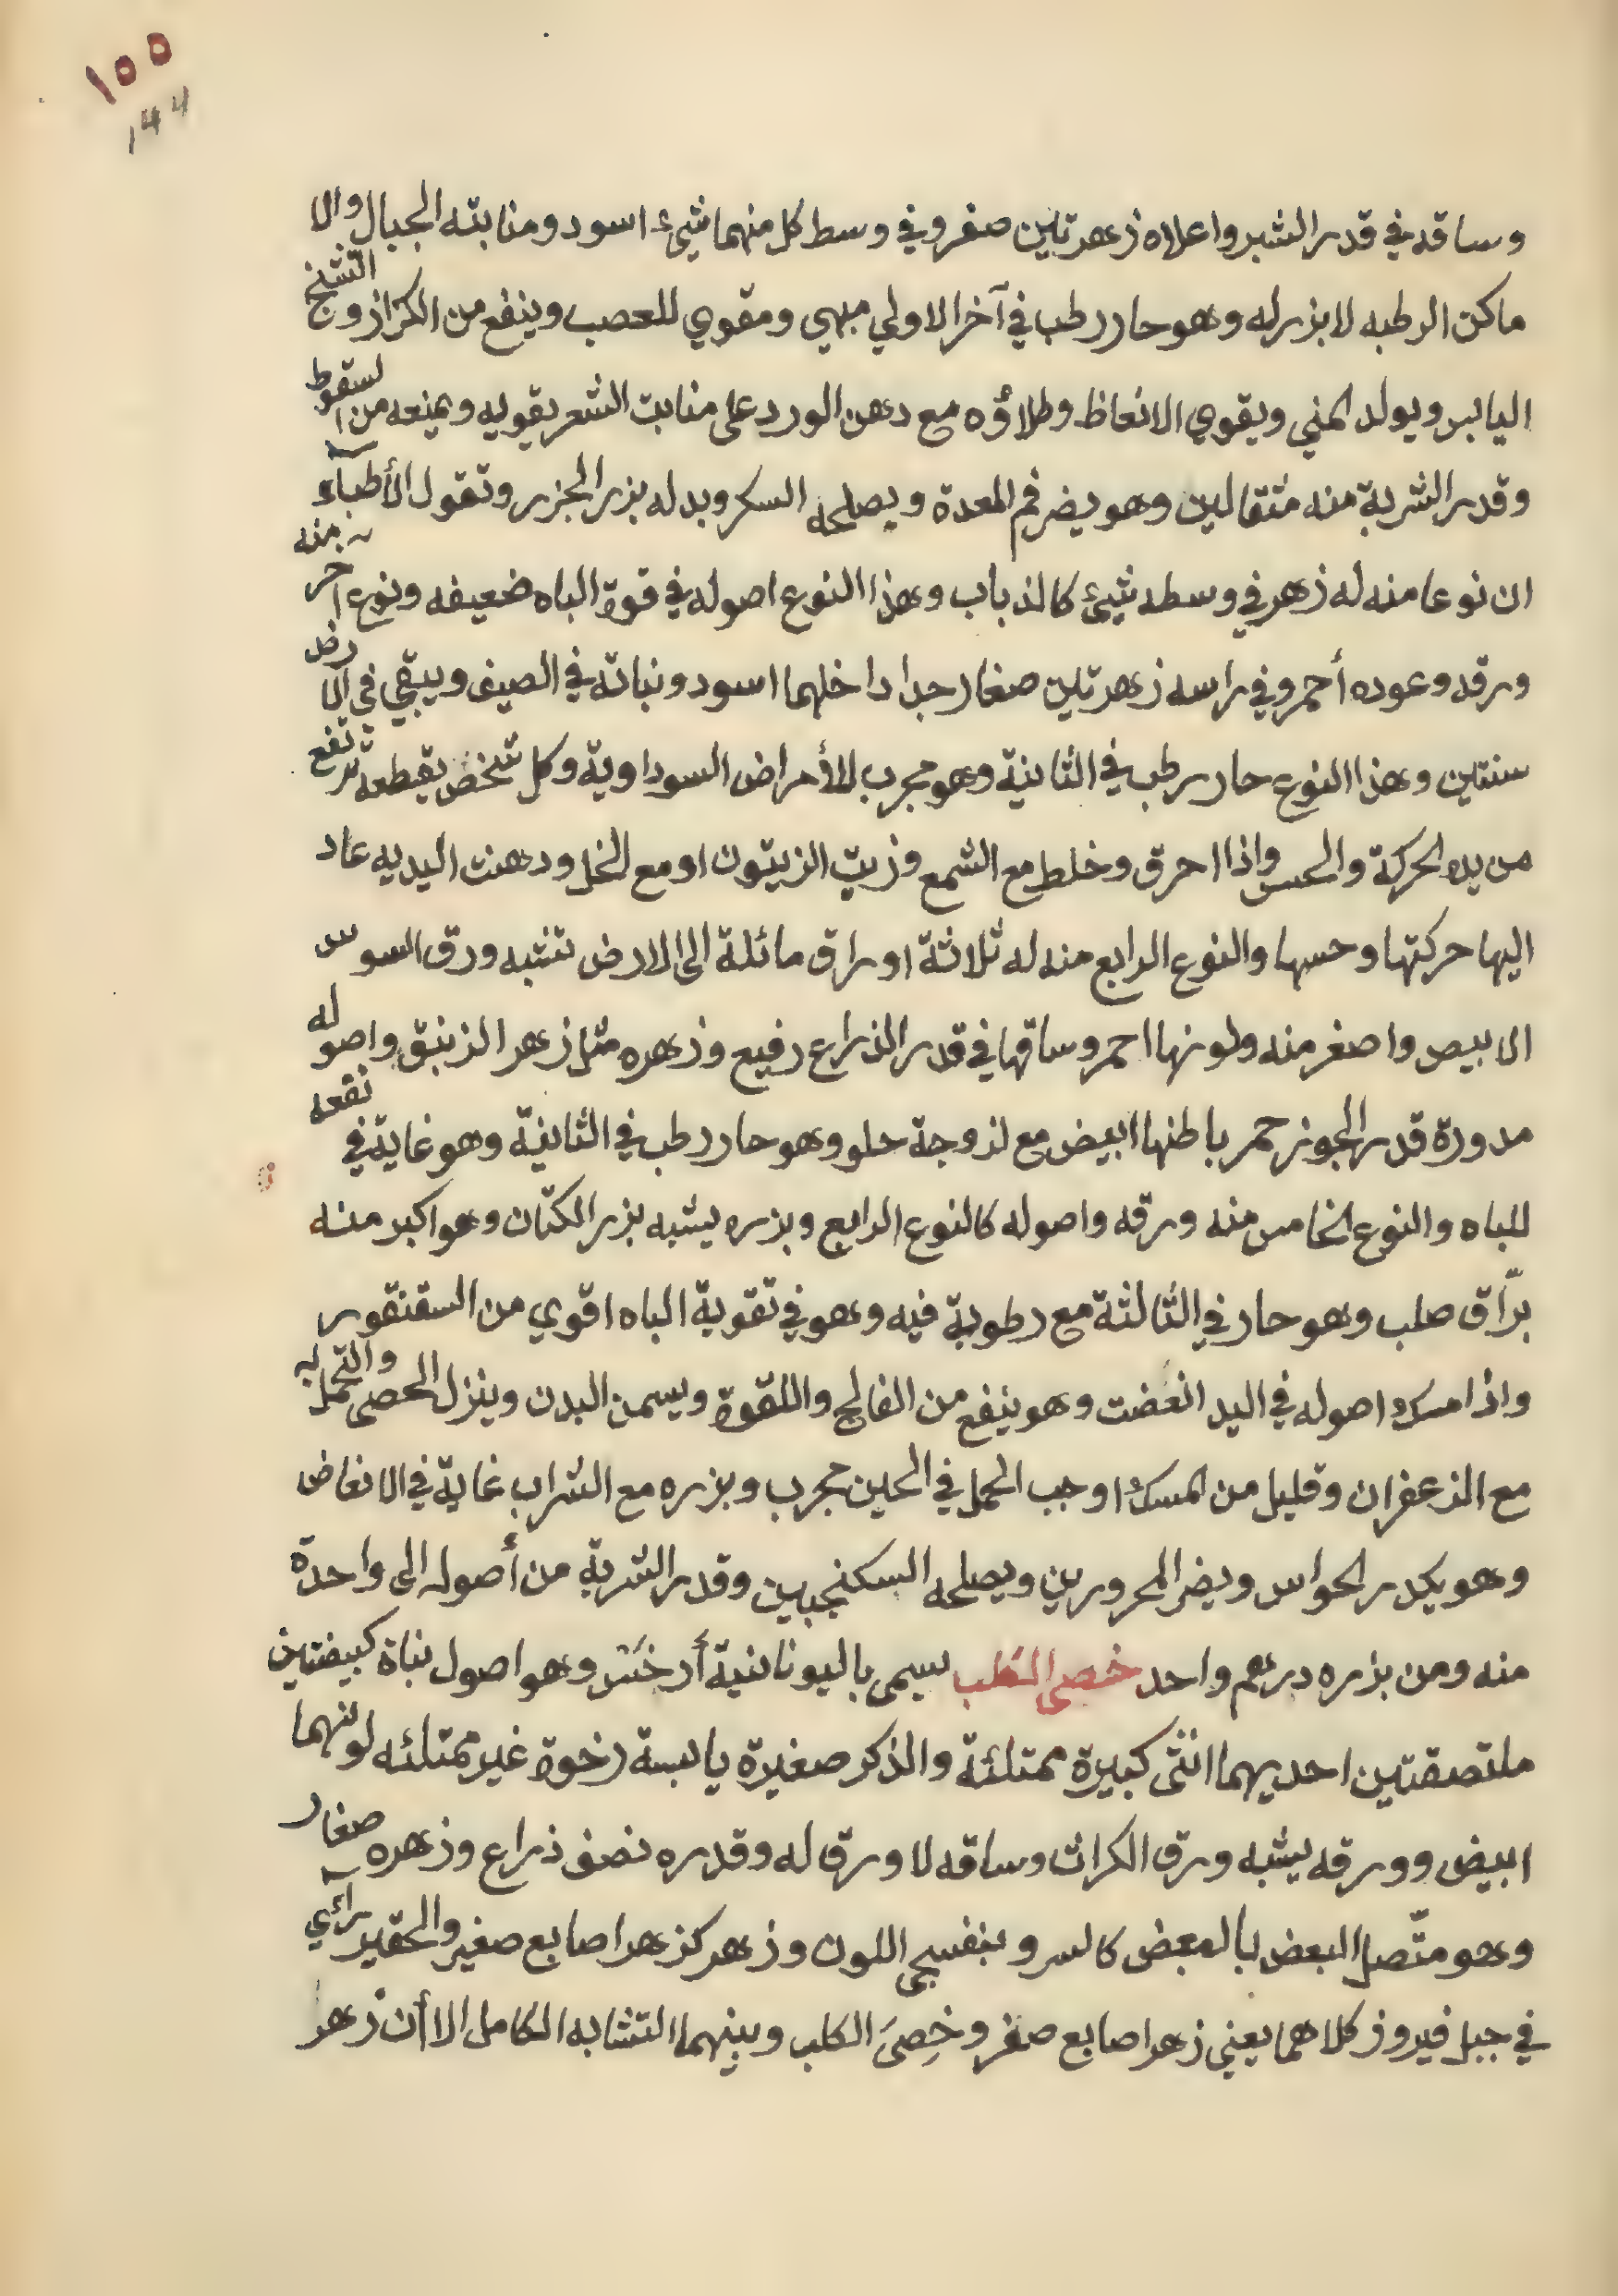 ١٥٥
١٤٤
وساقه في قدر الشبر واعلاه زهرتين صفر وفي وسط كل منهما شيء اسود ومنابته الجبال والا
ماكن الرطبه لا بزر له وهو حار رطب في آخر الاولي مبهي ومقوي للعصب وينفع من الكزاز والتشنج
اليابس ويولد المني ويقوي الانعاظ وطلاؤه مع دهن الورد على منابت الشعر يقويه ويمنعه من السقوط
وقدر الشربة منه مثقالين وهو يضر فم المعدة ويصلحه السكر وبدله بزر الجزر وتقول الأطباء
ان نوعا منه له زهر في وسطه شيئ كالذباب وهذا النوع اصوله في قوة الباه ضعيفه ونوع آخر منه
ورقه وعوده أحمر وفي راسه زهرتين صغار جدا داخلهما اسود ونباته في الصيف ويبقي في الارض
سنتين وهذا النوع حار رطب في الثانية وهو مجرب للأمراض السوداوية وكل شخص يقطعه ترتفع
من يده الحركة والحس واذا احرق وخلط مع الشمع وزيت الزيتون او مع الخل ودهنت اليد به عاد
اليها حركتها وحسها والنوع الرابع منه له ثلاثة اوراق مائلة الى الارض تشبه ورق السوس
الابيض واصغر منه ولونها احمر وساقها في قدر الذراع رفيع وزهره مثل زهر الزنبق واصوله
مدورة قدر الجوز حمر باطنها ابيض مع لزوجة حلو وهو حار رطب في الثانية وهو غاية في نفعه
للباه والنوع الخامس منه ورقه واصوله كالنوع الرابع وبزره يشبه بزر الكتان وهو اكبر منه
برّاق صلب وهو حار في الثالثة مع رطوبة فيه وهو في تقوية الباه اقوي من السقنقور
واذا امسك اصوله في اليد انعضت وهو ينفع من الفالج واللقوة ويسمن البدن وينزل الحصى والتحمل به
مع الزعفران وقليل من المسك اوجب الحمل في الحين مجرب وبزره مع الشراب غاية في الانعاض
وهو يكدر الحواس ويضر المحرورين ويصلحه السكنجبين وقدر الشربة من أصوله الى واحدة
منه ومن بزره درهم واحد خصى الثعلب يسمى باليونانية أرخش وهو اصول نباة كبيضتين
ملتصقتين احديهما انثى كبيرة ممتلئة والذكر صغيرة يابسة رخوة غير ممتلئه لونهما
ابيض وورقه يشبه ورق الكراث وساقه لا ورق له وقدره نصف ذراع وزهره صغار
وهو متّصل البعض بالبعض كالسرو بنفسجي اللون وزهر كزهر اصابع صغير والحقير رائي
في جبل فيروز كلاهما يعني زهر اصابع صفر وخِصىَ الكلب وبينهما التشابه الكامل الا أن زهر